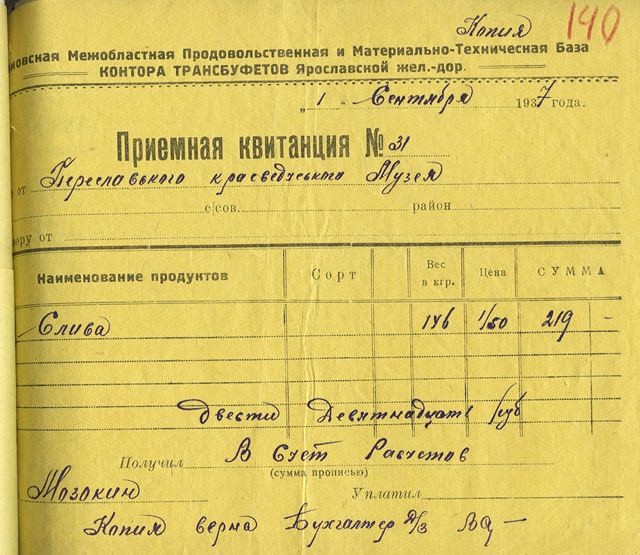 Копия 140
ковская Межобластная Продовольственная и Материально-Техническая База
КОНТОРА ТРАНСБУФЕТОВ Ярославской жел.-дор.
„1“ Сентября 1937 года.
Приемная квитанция № 31
от Переславского краеведческого Музея
с/сов. район
вору от
Наименование продуктов Сорт Вес в кгр. Цена СУММА
Слива 146 1/50 219 -
двести Девятнадцать руб
Получил В Счет Расчетов
(сумма прописью)
Мозокин Уплатил
Копия верна Бухгалтер